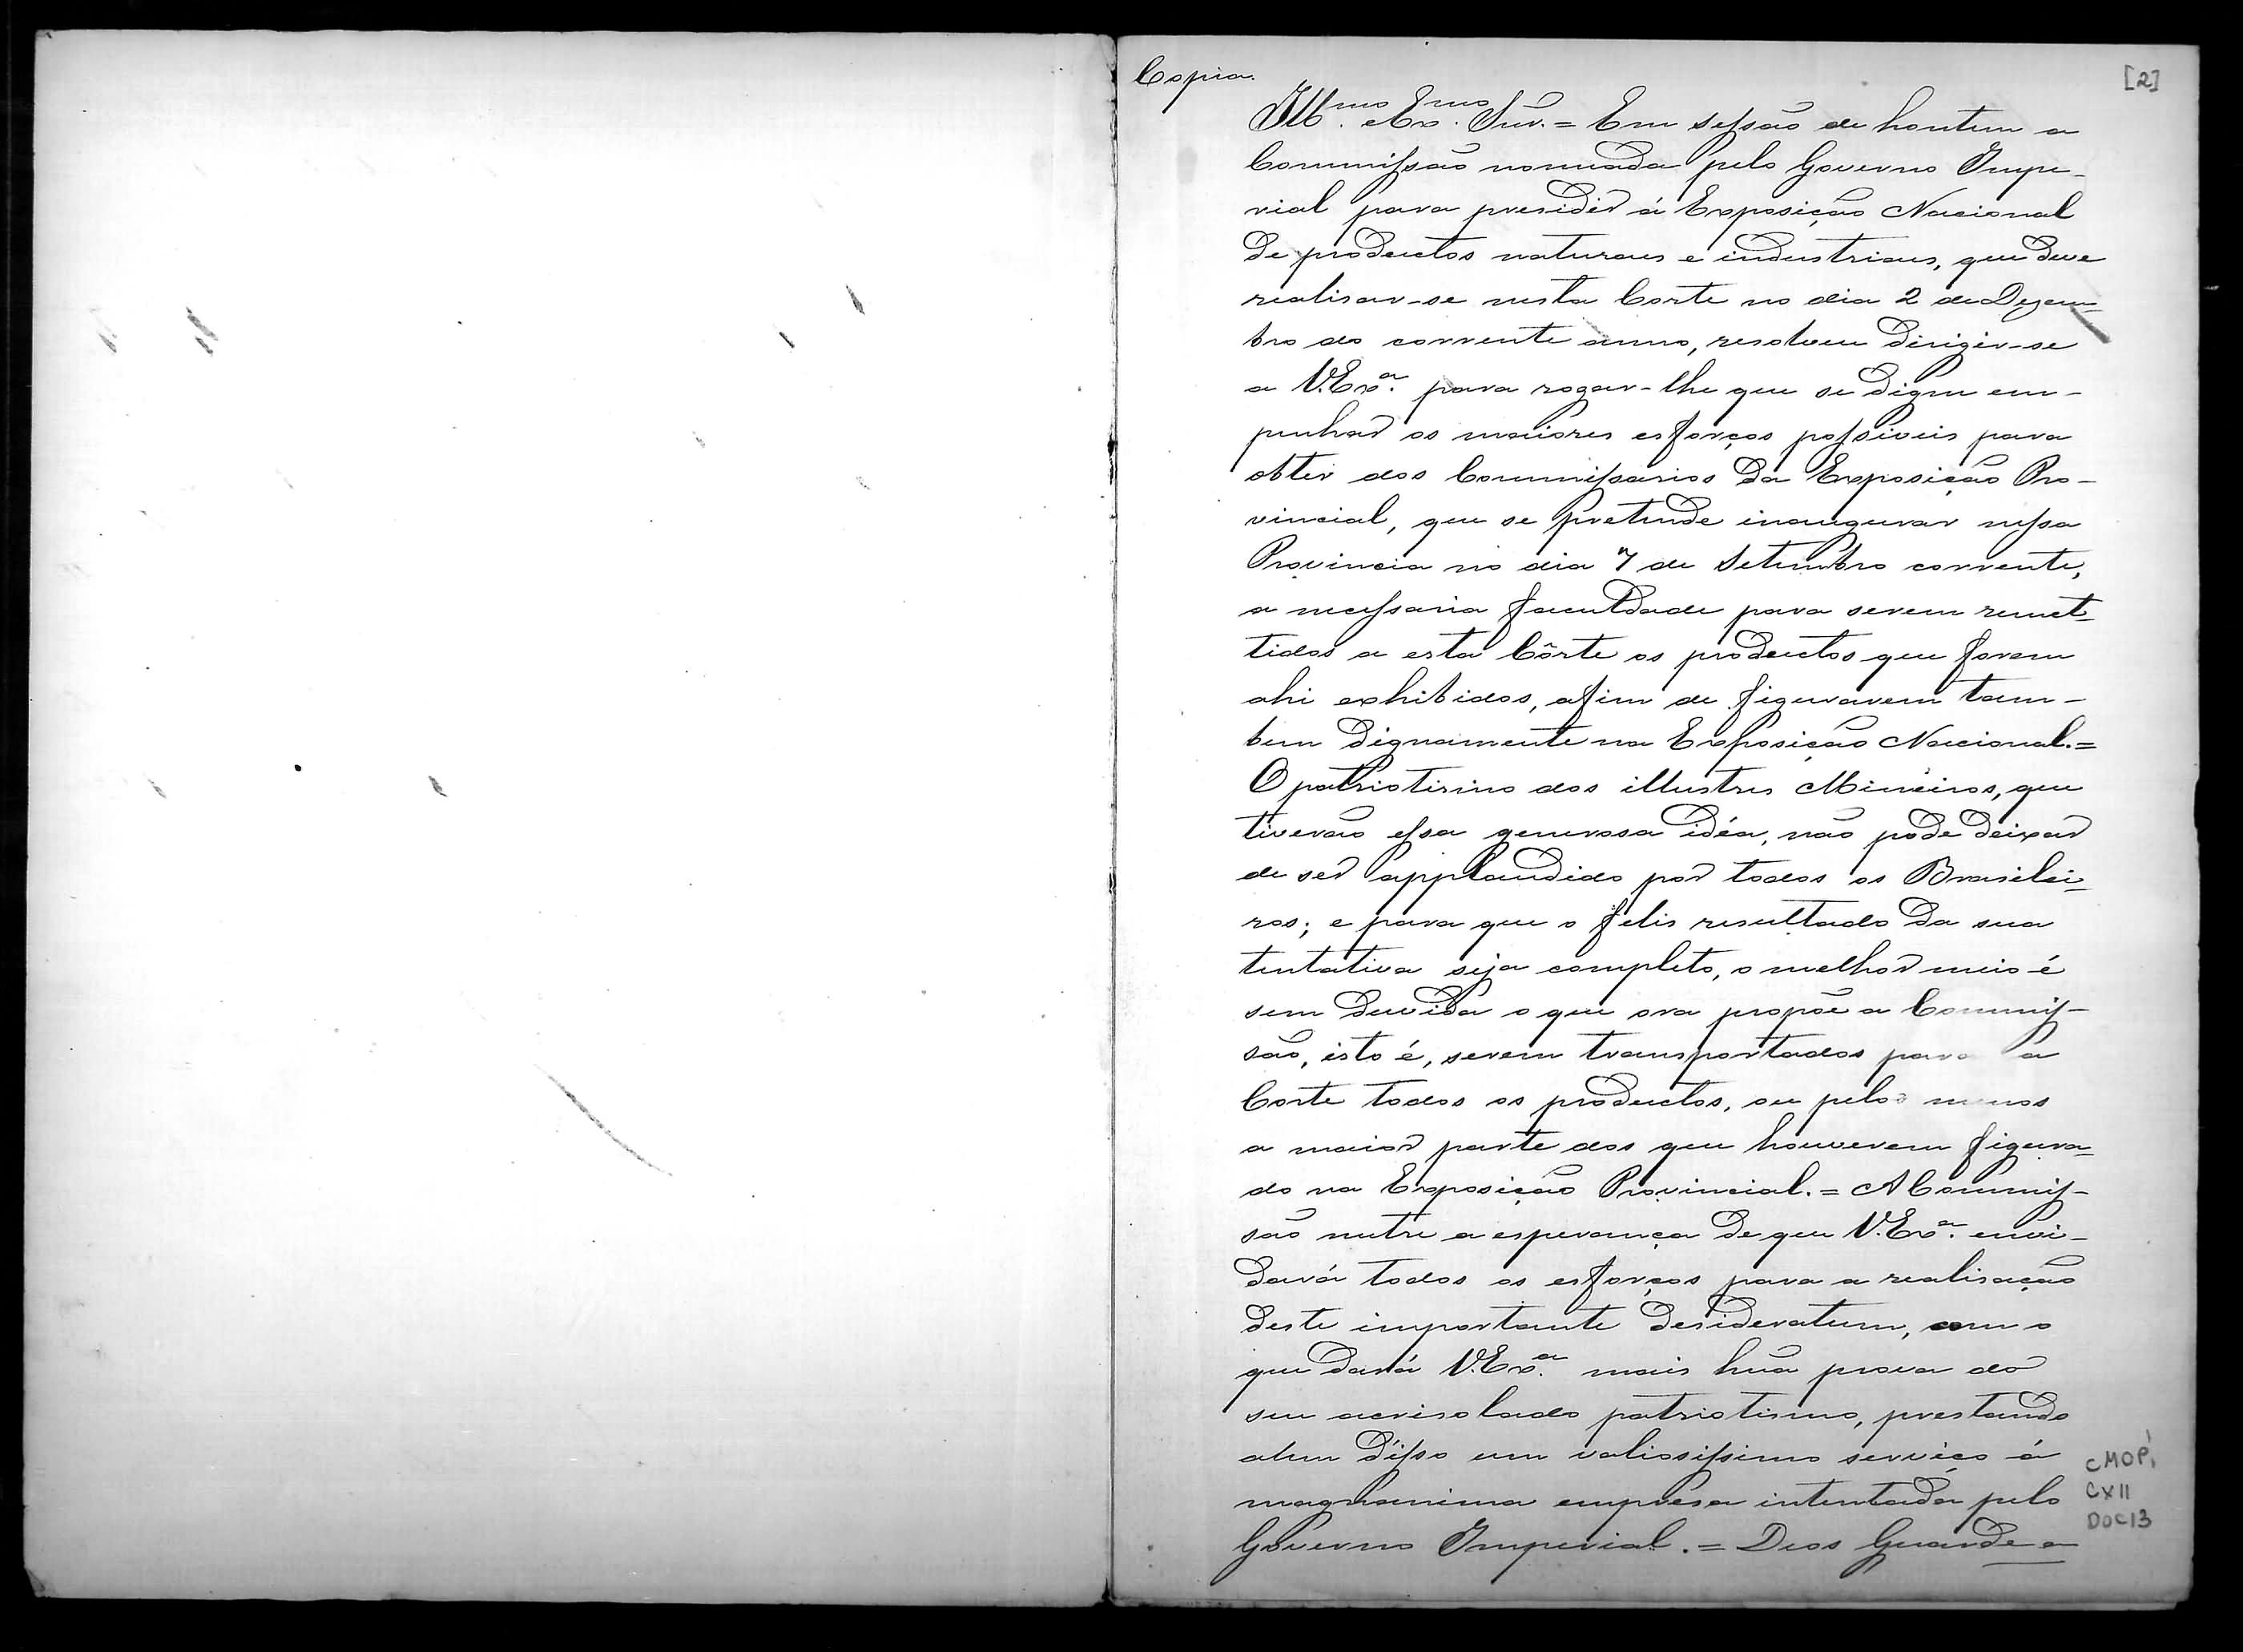 Copia.
[2]
Ill.mo e Ex.mo Snr. = Em sessão de hontem a
Commissão nomeada pelo Governo Impe-
rial para presidir á Exposição Nacional
de productos naturaes e industriaes, que deve
realisar-se nesta Corte no dia 2 de Dezem=
bro do corrente anno, resolveu dirigir-se
a V.Ex.ª para rogar-lhe que se digne em-
penhar os maiores esforços possiveis para
obter dos Commissarios da Exposição Pro-
vincial, que se pretende inaugurar nessa
Provincia no dia 7 de Setembro corrente,
a necessaria faculdade para serem remet=
tidos a esta Côrte os productos que forem
ahi exhibidos, afim de figurarem tam-
bem dignamente na Exposição Nacional. =
O patriotismo dos illustres Mineiros, que
tiverão essa generosa idéa, não pode deixar
de ser applaudido por todos os Brasilei=
ros; e para que o felis resultado da sua
tentativa seja completo, o melhor meio é
sem duvida o que ora propõe a Commis-
são, isto é, serem transportados para a
Corte todos os productos, ou pelo menos
a maior parte dos que houverem figura=
do na Exposição Provincial. = A Commis-
são nutre a esperança de que V.Ex.ª envi-
dará todos os esforços para a realisação
deste importante desideratum, com o
que dará V.Ex.ª mais hũa prova do
seu acrisolado patriotismo, prestando
alem disso um valiosissimo serviço á
magnanima empresa intentada pelo
Governo Imperial. = Deos Guarde a
CMOP,
CXII
DOC13